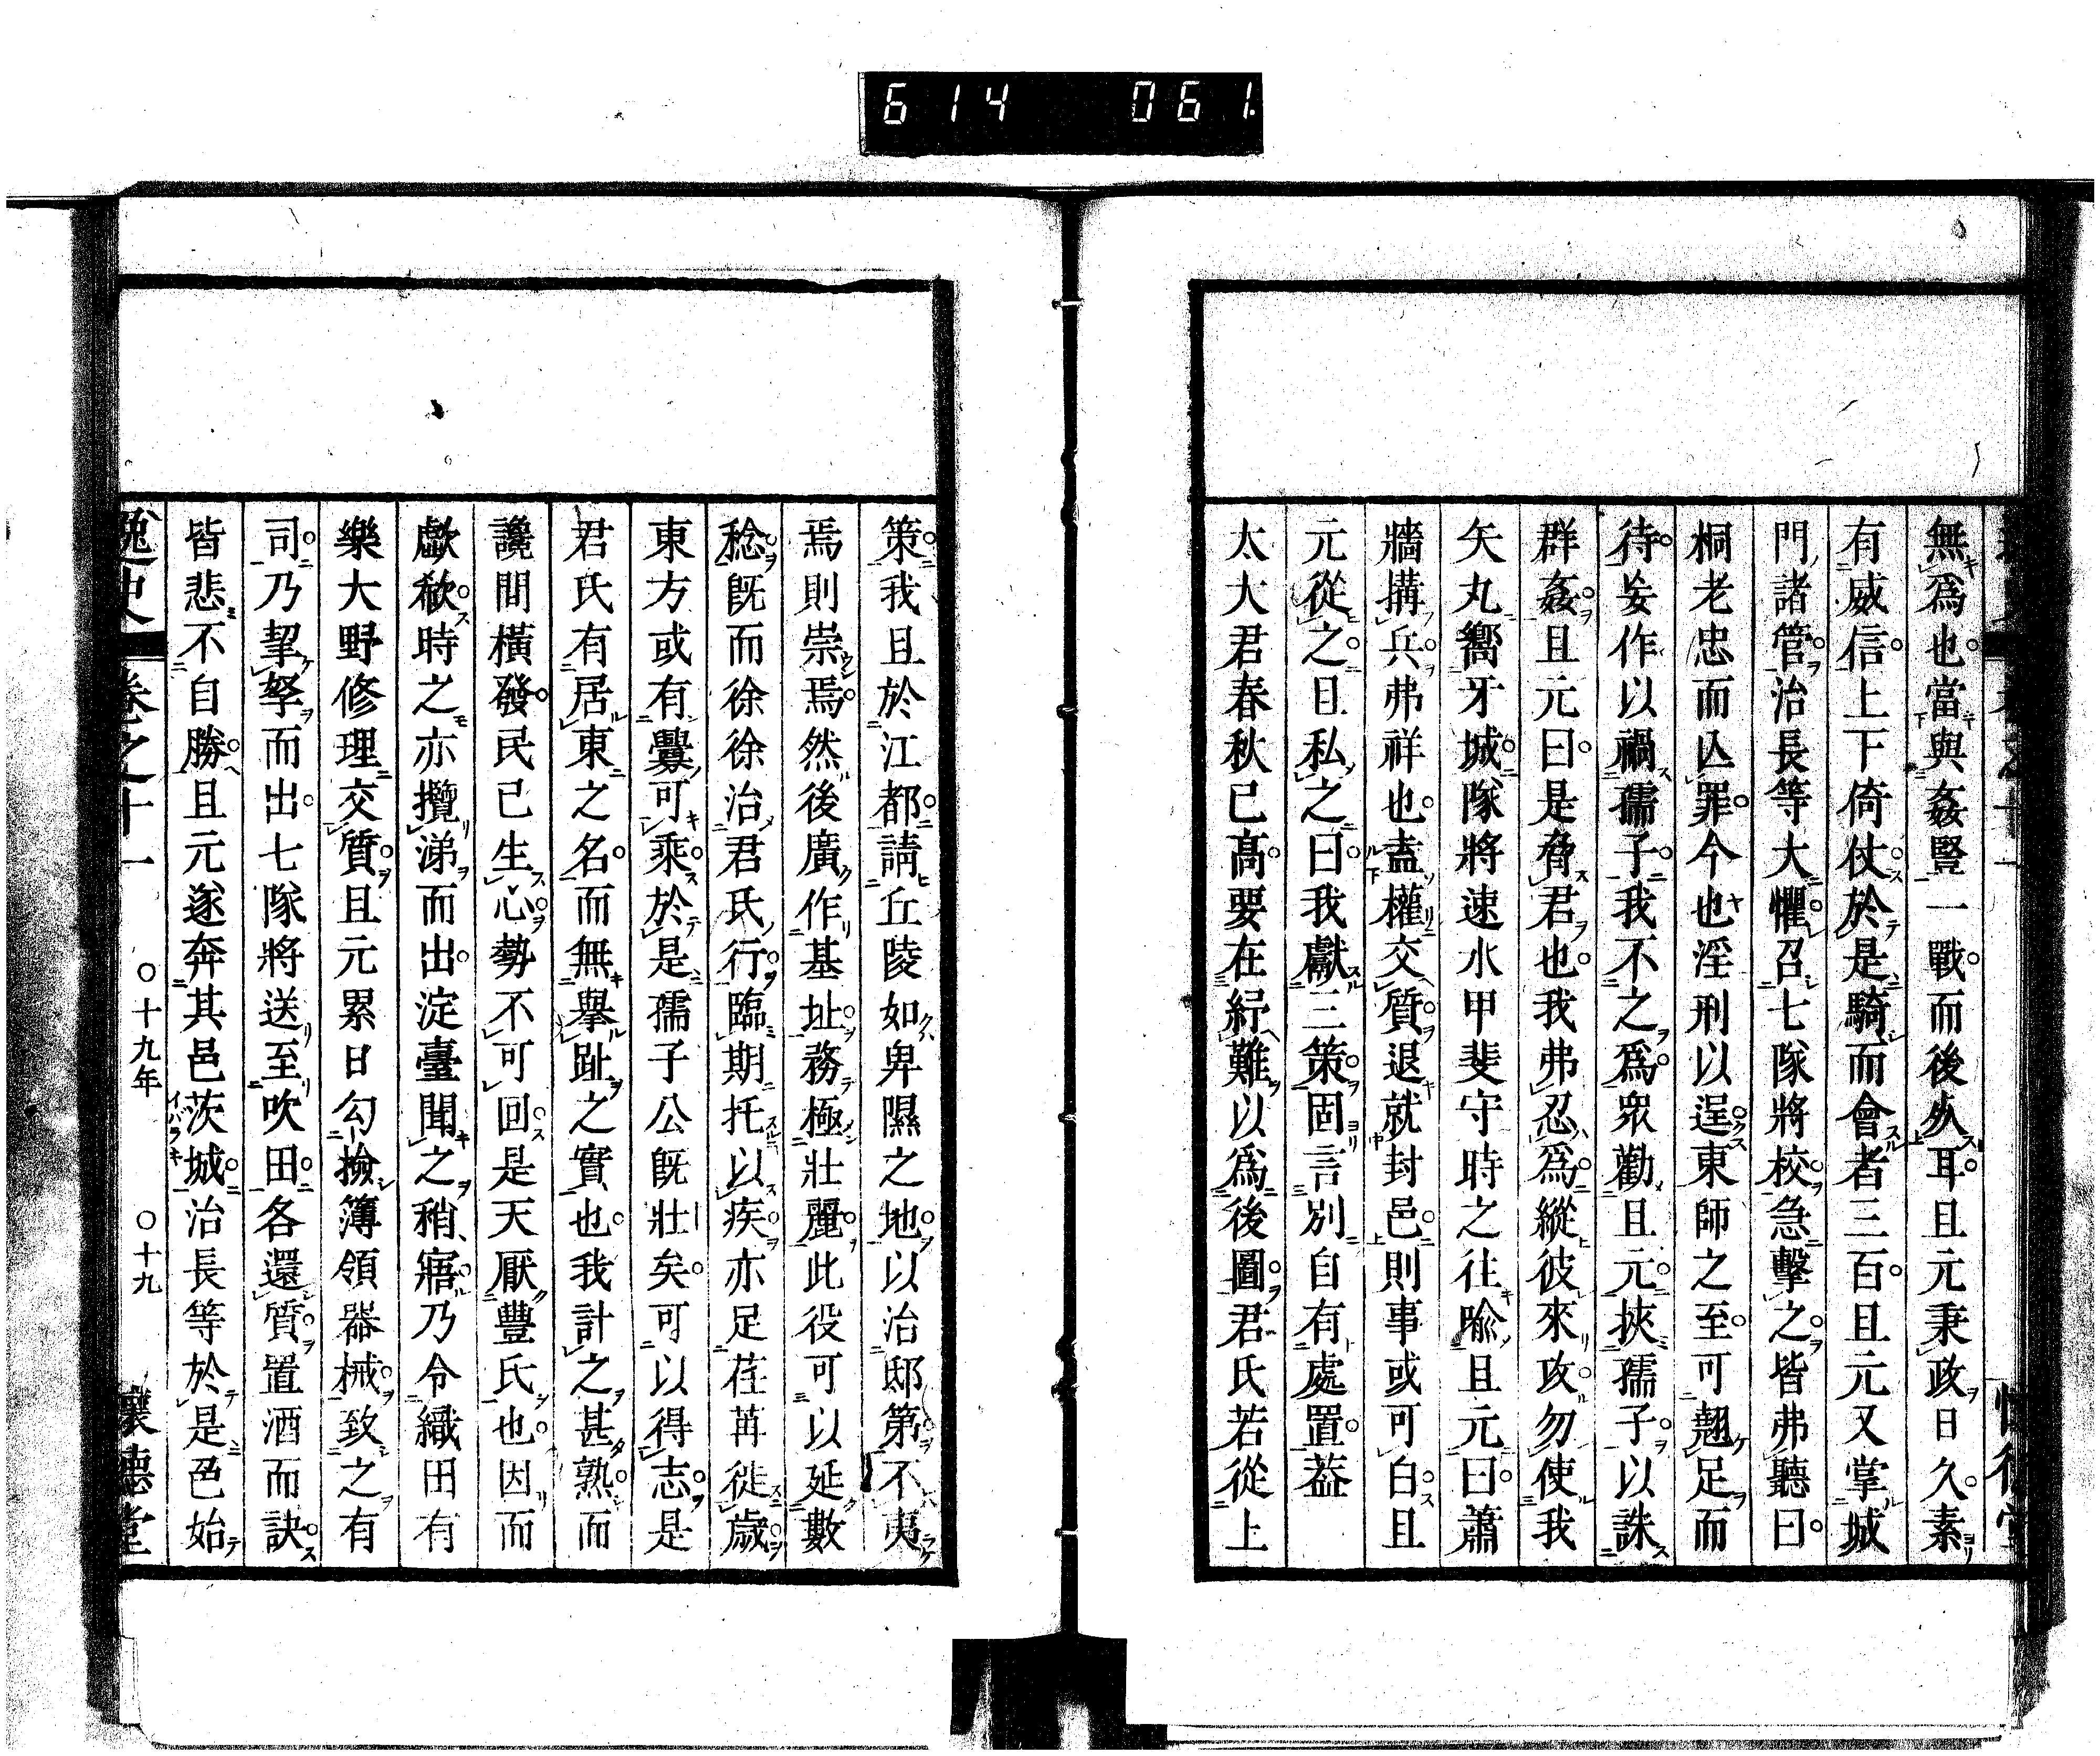 614 061
無爲也當與姦豎一戰而後处耳且元秉政日久素
有威信上下倚仗於是騎而會者三百且元又掌城
門諸管治長等大懼召七隊將校急擊之皆弗聽曰
桐老忠而亾罪今也淫刑以逞東師之至可翹足而
待妄作以禍孺子我不之爲衆勸且元挾孺子以誅
群姦且元曰是脅君也我弗忍爲縱彼來攻勿使我
矢丸嚮牙城隊將速水甲斐守時之往喩且元曰蕭
牆搆兵弗祥也盍權交質退就封邑則事或可白且
元從之且私之曰我獻三策固言別自有處置葢
太大君春秋已高要在紓難以爲後圖君氏若從上
策我且於江都請丘陵如卑隰之地以治邸第不夷
焉則崇焉然後廣作基址務極壯麗此役可以延數
稔既而徐徐治君氏行臨期托以疾亦足荏苒徙歲
東方或有釁可乘於是孺子公既壯矣可以得志是
君氏有居東之名而無擧趾之實也我計之甚熟而
讒間橫發民已生心勢不可回是天厭豐氏也因而
歔欷時之亦攬涕而出淀臺聞之稍寤乃令織田有
樂大野修理交質且元累日勾撿簿領器械致之有
司乃挈孥而出七隊將送至吹田各還質置酒而訣
皆悲不自勝且元遂奔其邑茨城治長等於是色始
逸史 卷之十一 ○十九年 ○十九 懷德堂